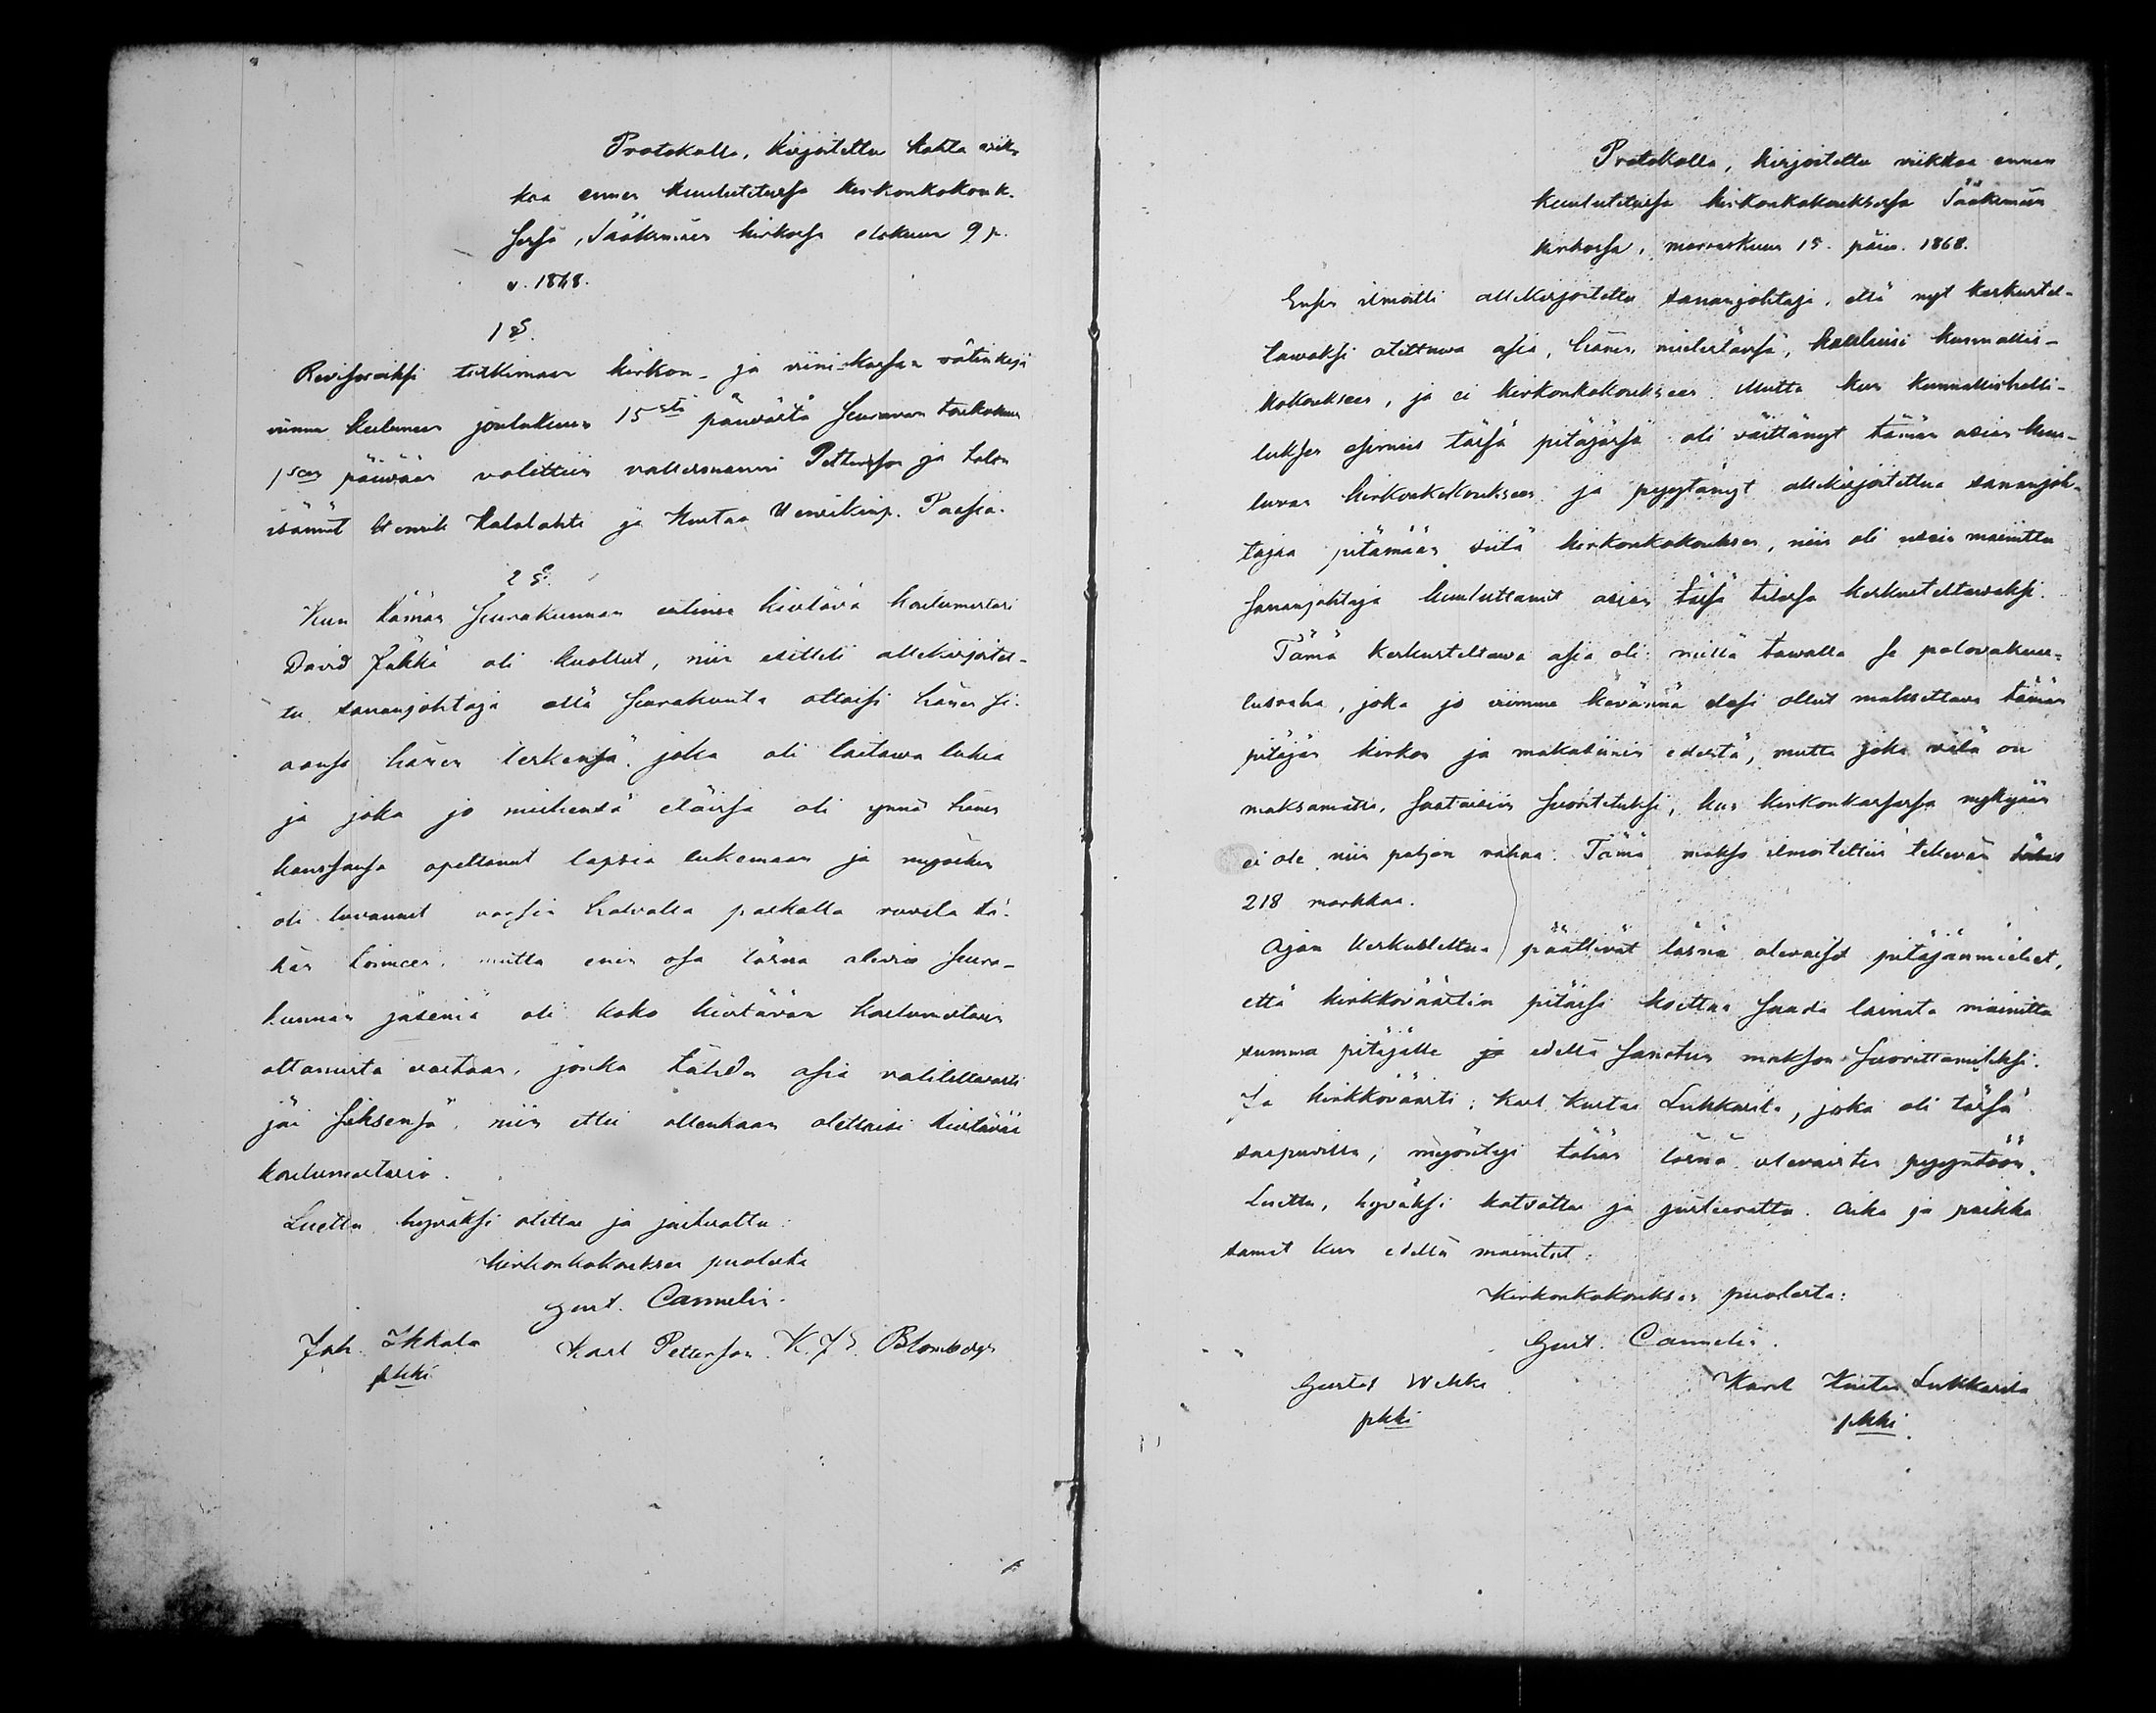 Protokolla, kirjoitettu kahta viik-
koa ennen kuulutetussa kirkonkokouk-
sessa, Sääksmäen kirkossa elokuun 9 p.
v. 1868.
1 §.
Revisoreiksi tutkimaan kirkon- ja viini-kassan rätinkejä
viime kuluneen joulukuun 15sta päivästä seuraavan toukokuun
1seen päivään valittiin vallesmanni Pettersson ja talon
isännät Henrik Kalalahti ja Kustaa Henrikinp. Paasia.
2 §.
Kun tämän seurakunnan entinen kiertävä koulumestari
David Jäkkä oli kuollut, niin esitteli allekirjoitet-
tu sananjohtaja että seurakunta ottaisi hänen si-
aansa hänen leskensä, joka oli taitava lukia
ja joka jo miehensä eläissä oli ynnä hänen
kanssansa opettanut lapsia lukemaan ja myöskin
oli luvannut varsin halvalla palkalla ruveta tä-
hän toimeen, mutta enin osa läsnä olevia seura-
kunnan jäseniä oli koko kiertävän koulumestarin
ottamista vastaan, jonka tähden asia valitettavasti
jäi siksensä, niin ettei ollenkaan otettaisi kiertävää
koulumestaria.
Luettu hyväksi otettu ja justeerattu.
Kirkonkokouksen puolesta
Gust. Cannelin.
Joh. Ikkala Karl Petterson. K. J. Blomberg
pkki
Protokolla, kirjoitettu viikkoa ennen
kuulutetussa kirkonkokouksessa Sääksmäen
kirkossa, marraskuun 15. päiv. 1868.
Ensin ilmoitti allekirjoitettu sananjohtaja, että nyt keskustel-
tavaksi otettava asia, hänen mielestänsä, kuuluisi kunnallis-
kokoukseen, ja ei kirkonkokoukseen. Mutta kun kunnallishalli-
tuksen esimies tässä pitäjässä oli väittänyt tämän asian kuu-
luvan kirkonkokoukseen ja pyytänyt allekirjoitettua sananjoh-
tajaa pitämään siitä kirkonkokouksen, niin oli usein mainittu
sananjohtaja kuuluttanut asian tässä tilassa keskusteltavaksi.
Tämä keskusteltava asia oli: millä tavalla se palovakuu-
tusraha, joka jo viimme kevännä olisi ollut maksettava tämän
pitäjän kirkon ja makasiinin edestä, mutta joka vielä on
maksamatta, saataisiin suoritetuksi, kun kirkonkassassa nykyään
ei ole niin paljon rahaa. Tämä makso ilmoitettiin tekevän
218 markkaa.
Asian keskusteltua päättivät läsnä olevaiset pitäjänmiehet,
että kirkkoväärtin pitäisi koettaa saada lainata mainittu
summa pitäjälle ja edellä sanotun makson suorittamiseksi.
Ja kirkkoväärti: Karl Kustaa Lukkarila, joka oli tässä
saapuvilla, myöntyi tähän läsnä olevaisten pyyntöön.
Luettu, hyväksi katsottu ja justeerattu. Aika ja paikka
samat kun edellä mainitut:
Kirkonkokouksen puolesta:
Gust. Cannelin.
Gustaf Wekka Karl Kustaa Lukkarila
pkki pkki